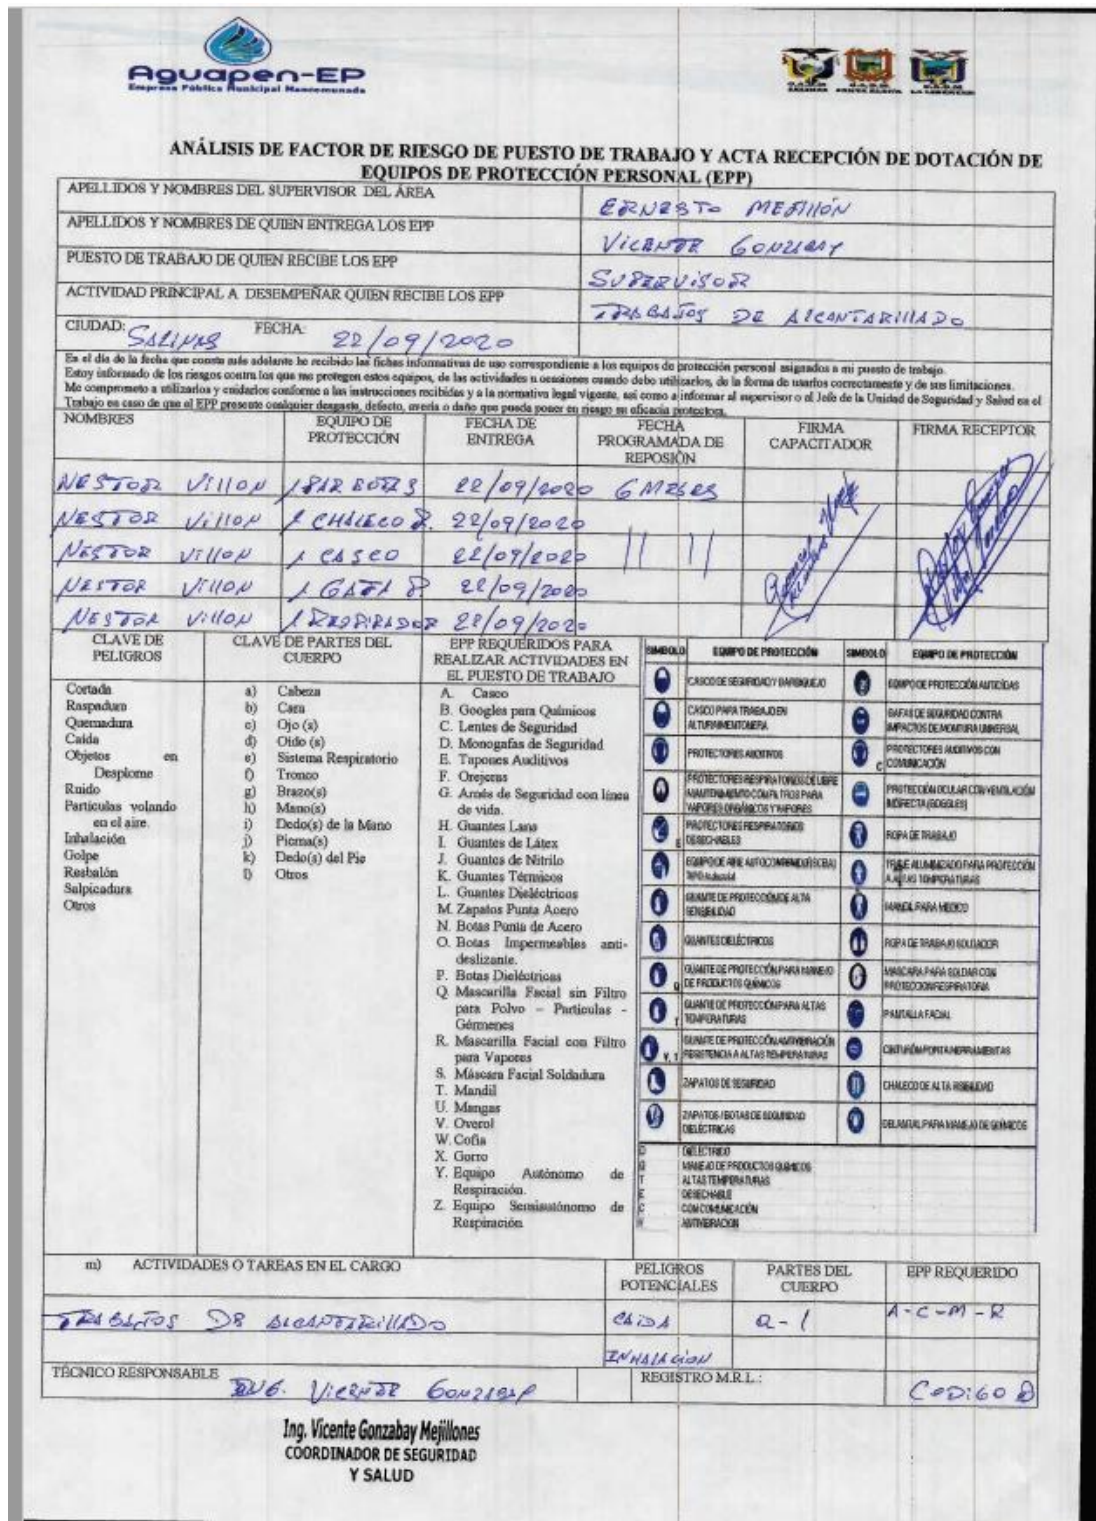 Aguapen-EP
Empresa Pública Municipal Mancomunada
ANÁLISIS DE FACTOR DE RIESGO DE PUESTO DE TRABAJO Y ACTA RECEPCIÓN DE DOTACIÓN DE
EQUIPOS DE PROTECCIÓN PERSONAL (EPP)
APELLIDOS Y NOMBRES DEL SUPERVISOR DEL ÁREA ERNESTO MEJILLÓN
APELLIDOS Y NOMBRES DE QUIEN ENTREGA LOS EPP VICENTE GONZABAY
PUESTO DE TRABAJO DE QUIEN RECIBE LOS EPP SUPERVISOR
ACTIVIDAD PRINCIPAL A DESEMPEÑAR QUIEN RECIBE LOS EPP TRABAJOS DE ALCANTARILLADO
CIUDAD: SALINAS FECHA: 22/09/2020
En el día de la fecha que consta más adelante he recibido las fichas informativas de uso correspondiente a los equipos de protección personal asignados a mi puesto de trabajo.
Estoy informado de los riesgos contra los que me protegen estos equipos, de las actividades u ocasiones cuando debo utilizarlos, de la forma de usarlos correctamente y de sus limitaciones.
Me comprometo a utilizarlos y cuidarlos conforme a las instrucciones recibidas y a la normativa legal vigente, así como a informar al supervisor o al Jefe de la Unidad de Seguridad y Salud en el
Trabajo en caso de que el EPP presente cualquier desgaste, defecto, avería o daño que pueda poner en riesgo su eficacia protectora.
NOMBRES EQUIPO DE PROTECCIÓN FECHA DE ENTREGA FECHA PROGRAMADA DE REPOSIÓN FIRMA CAPACITADOR FIRMA RECEPTOR
NESTOR VILLON 1 PAR BOTAS 22/09/2020 6 MESES
NESTOR VILLON 1 CHALECO R. 22/09/2020
NESTOR VILLON 1 CASCO 22/09/2020
NESTOR VILLON 1 GAFA P. 22/09/2020
NESTOR VILLON 1 RESPIRADOR 22/09/2020
CLAVE DE PELIGROS
Cortada
Raspadura
Quemadura
Caída
Objetos en
Desplome
Ruido
Partículas volando
en el aire.
Inhalación
Golpe
Resbalón
Salpicadura
Otros
CLAVE DE PARTES DEL CUERPO
a) Cabeza
b) Cara
c) Ojo (s)
d) Oído (s)
e) Sistema Respiratorio
f) Tronco
g) Brazo(s)
h) Mano(s)
i) Dedo(s) de la Mano
j) Pierna(s)
k) Dedo(s) del Pie
l) Otros
EPP REQUERIDOS PARA
REALIZAR ACTIVIDADES EN
EL PUESTO DE TRABAJO
A. Casco
B. Googles para Químicos
C. Lentes de Seguridad
D. Monogafas de Seguridad
E. Tapones Auditivos
F. Orejeras
G. Arnés de Seguridad con línea
de vida.
H. Guantes Lana
I. Guantes de Látex
J. Guantes de Nitrilo
K. Guantes Térmicos
L. Guantes Dieléctricos
M. Zapatos Punta Acero
N. Botas Punta de Acero
O. Botas Impermeables anti-
deslizante.
P. Botas Dieléctricas
Q Mascarilla Facial sin Filtro
para Polvo – Partículas -
Gérmenes
R. Mascarilla Facial con Filtro
para Vapores
S. Máscara Facial Soldadura
T. Mandil
U. Mangas
V. Overol
W. Cofia
X. Gorro
Y. Equipo Autónomo de
Respiración.
Z. Equipo Semiautónomo de
Respiración
SIMBOLO EQUIPO DE PROTECCIÓN SIMBOLO EQUIPO DE PROTECCIÓN
CASCO DE SEGURIDAD Y BARBIQUEJO
CASCO PARA TRABAJO EN
PROTECTORES AUDITIVOS
PROTECTORES RESPIRATORIOS DE LIBRE
MANTENIMIENTO CON FILTROS PARA
VAPORES ORGÁNICOS Y VAPORES
E PROTECTORES RESPIRATORIOS
DESECHABLES
EQUIPO DE AIRE AUTOCONTENIDO (SCBA)
GUANTE DE PROTECCIÓN DE ALTA
SENSIBILIDAD
GUANTES DIELÉCTRICOS
Q GUANTE DE PROTECCIÓN PARA MANEJO
DE PRODUCTOS QUÍMICOS
T GUANTE DE PROTECCIÓN PARA ALTAS
TEMPERATURAS
V, T GUANTE DE PROTECCIÓN ANTIVIBRACIÓN
RESISTENCIA A ALTAS TEMPERATURAS
ZAPATOS DE SEGURIDAD
ZAPATOS / BOTAS DE SEGURIDAD
DIELÉCTRICAS
EQUIPO DE PROTECCIÓN ANTICAÍDAS
GAFAS DE SEGURIDAD CONTRA
IMPACTOS DE MONTURA UNIVERSAL
C PROTECTORES AUDITIVOS CON
COMUNICACIÓN
PROTECCIÓN OCULAR CON VENTILACIÓN
INDIRECTA (GOGGLES)
ROPA DE TRABAJO
TRAJE ALUMINIZADO PARA PROTECCIÓN
A ALTAS TEMPERATURAS
MANDIL PARA MEDICO
ROPA DE TRABAJO SOLDADOR
MASCARA PARA SOLDAR CON
PROTECCION RESPIRATORIA
PANTALLA FACIAL
CINTURÓN PORTA HERRAMIENTAS
CHALECO DE ALTA VISIBILIDAD
DELANTAL PARA MANEJO DE QUÍMICOS
DIELÉCTRICO
MANEJO DE PRODUCTOS QUÍMICOS
T ALTAS TEMPERATURAS
E DESECHABLE
C CON COMUNICACIÓN
ANTIVIBRACION
m) ACTIVIDADES O TAREAS EN EL CARGO PELIGROS POTENCIALES PARTES DEL CUERPO EPP REQUERIDO
TRABAJOS DE ALCANTARILLADO CAIDA a-l A-C-M-R
INHALACION
TÉCNICO RESPONSABLE ING. VICENTE GONZABAY REGISTRO M.R.L.: CODIGO
Ing. Vicente Gonzabay Mejillones
COORDINADOR DE SEGURIDAD
Y SALUD